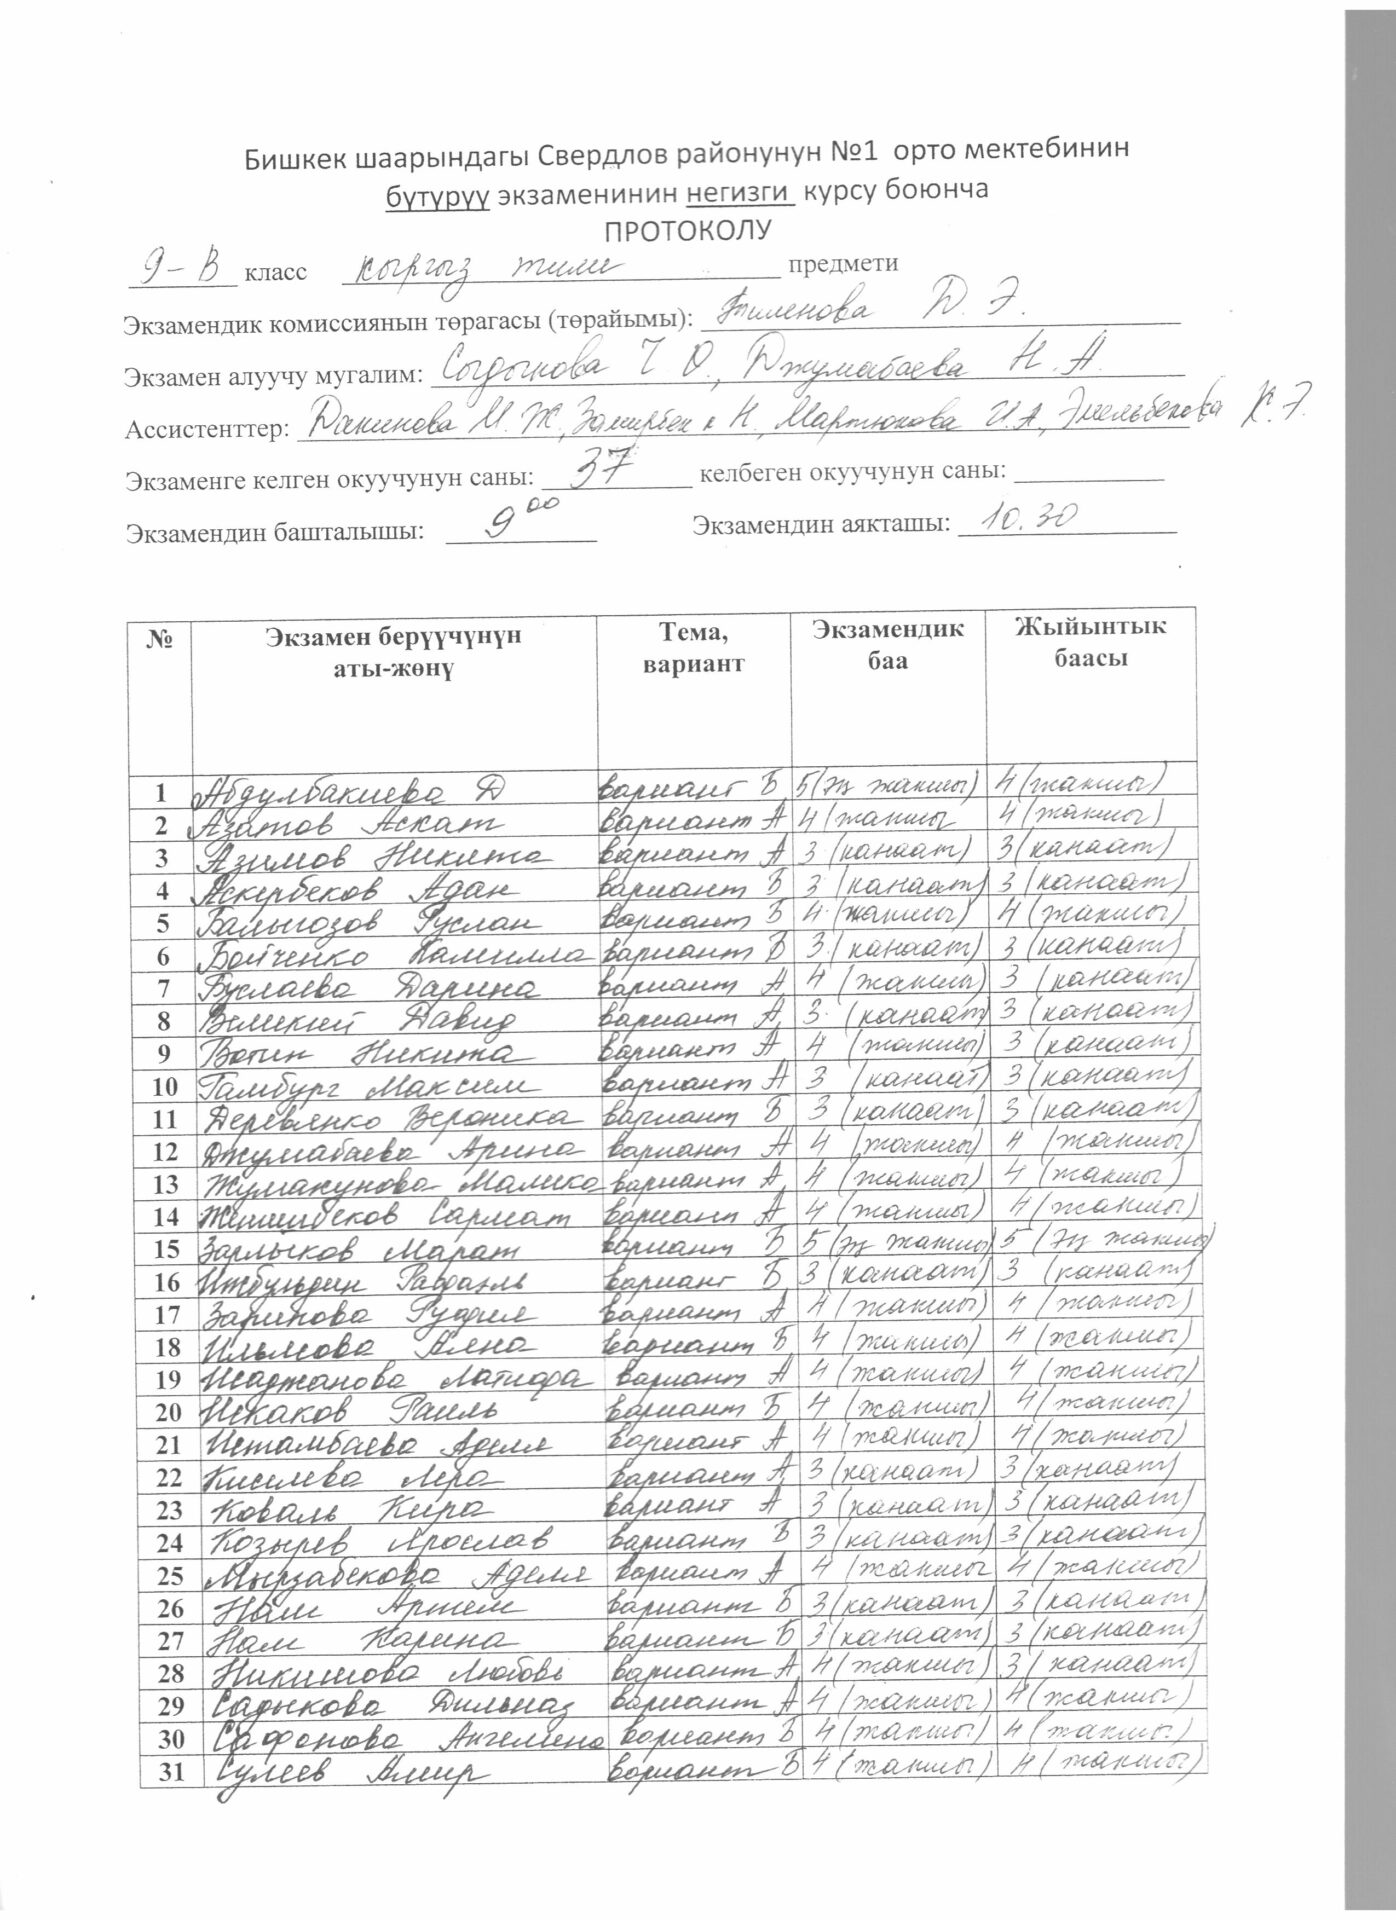 Бишкек шаарындагы Свердлов районунун №1 орто мектебинин
бүтүрүү экзаменинин негизги курсу боюнча
ПРОТОКОЛУ
9-В класс кыргыз тили предмети
Экзамендик комиссиянын төрагасы (төрайымы): Тиленова Д. Э.
Экзамен алуучу мугалим: Сыдыкова Ч. О., Джумабаева Н. А.
Ассистенттер: Дакинова М. Ж., Замирбек к Н., Мартюкова И.А., Эмельбекова К. Э.
Экзаменге келген окуучунун саны: 37 келбеген окуучунун саны:
Экзамендин башталышы: 9 00 Экзамендин аякташы: 10.30
№ Экзамен берүүчүнүн аты-жөнү Тема, вариант Экзамендик баа Жыйынтык баасы
1 Абдулбакиева Д вариант Б 5 (эң жакшы) 4 (жакшы)
2 Азатов Аскат вариант А 4 (жакшы 4 (жакшы)
3 Азимов Никита вариант А 3 (канаат) 3 (канаат)
4 Аскербеков Адан вариант Б 3 (канаат) 3 (канаат)
5 Балыгозов Руслан вариант Б 4 (жакшы) 4 (жакшы)
6 Бойченко Камилла вариант Б 3 (канаат) 3 (канаат)
7 Буслаева Дарина вариант А 4 (жакшы) 3 (канаат)
8 Великий Давид вариант А 3 (канаат) 3 (канаат)
9 Вотин Никита вариант А 4 (жакшы) 3 (канаат)
10 Гамбург Максим вариант А 3 (канаат) 3 (канаат)
11 Деревянко Вероника вариант Б 3 (канаат) 3 (канаат)
12 Джумабаева Арина вариант А 4 (жакшы) 4 (жакшы)
13 Жумакунова Малика вариант А 4 (жакшы) 4 (жакшы)
14 Жишибеков Сармат вариант А 4 (жакшы) 4 (жакшы)
15 Зарлыков Марат вариант Б 5 (эң жакшы) 5 (эң жакшы)
16 Ижбульдин Рафаэль вариант Б 3 (канаат) 3 (канаат)
17 Зарипова Руфия вариант А 4 (жакшы) 4 (жакшы)
18 Ильясова Ална вариант Б 4 (жакшы) 4 (жакшы)
19 Исаджанова Латифа вариант А 4 (жакшы) 4 (жакшы)
20 Искаков Раиль вариант Б 4 (жакшы) 4 (жакшы)
21 Истамбаева Аделя вариант А 4 (жакшы) 4 (жакшы)
22 Киселева Лера вариант А 3 (канаат) 3 (канаат)
23 Коваль Кира вариант А 3 (канаат) 3 (канаат)
24 Козырев Ярослав вариант Б 3 (канаат) 3 (канаат)
25 Мырзабекова Аделя вариант А 4 (жакшы 4 (жакшы)
26 Нам Артем вариант Б 3 (канаат) 3 (канаат)
27 Нам Карина вариант Б 3 (канаат) 3 (канаат)
28 Никишова Любовь вариант А 4 (жакшы) 3 (канаат)
29 Садыкова Дильназ вариант А 4 (жакшы) 4 (жакшы)
30 Сафонова Ангелина вариант Б 4 (жакшы) 4 (жакшы)
31 Сулеев Амир вариант Б 4 (жакшы) 4 (жакшы)